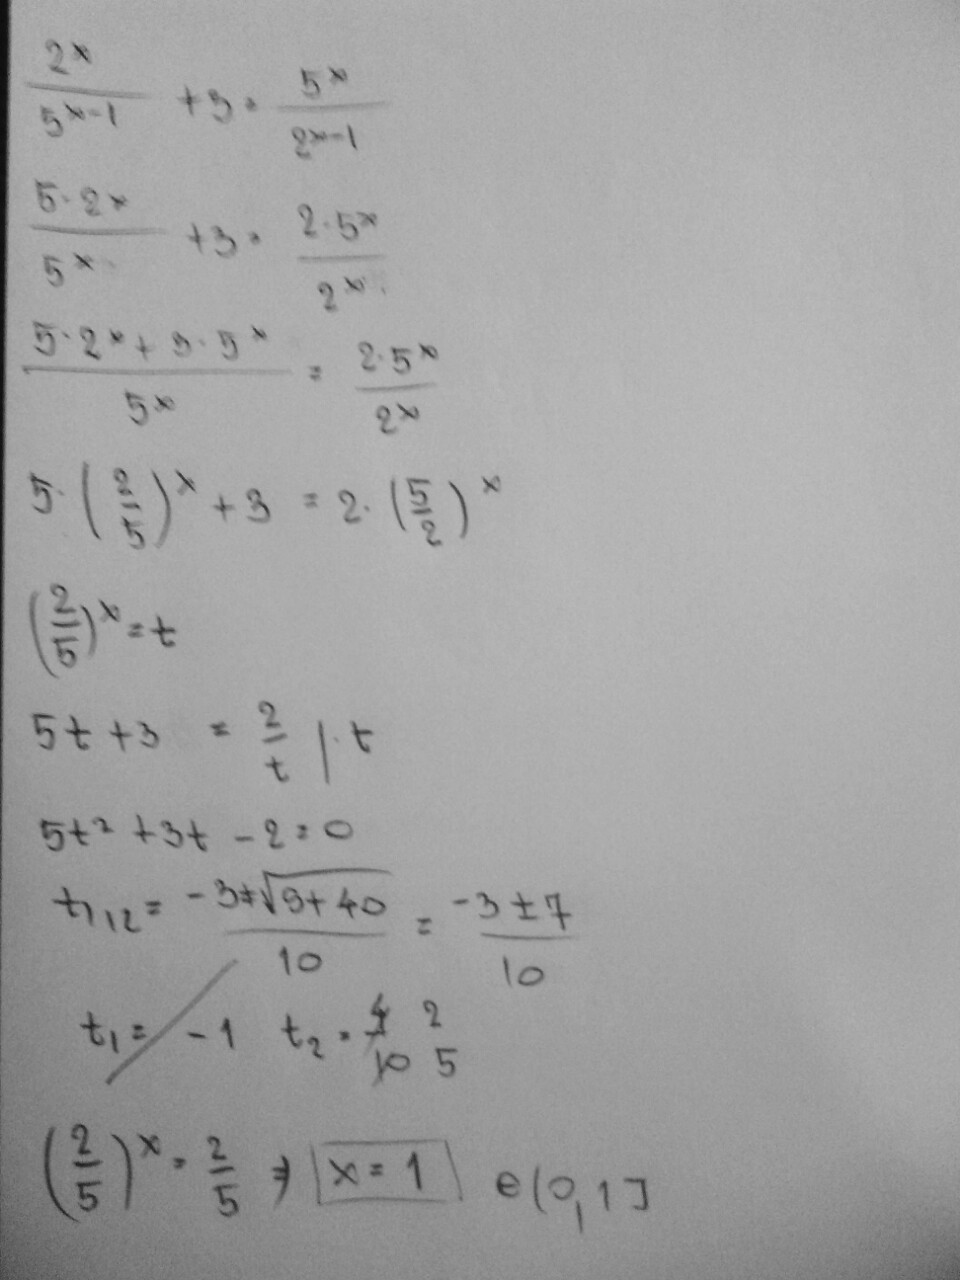 2^x / 5^(x-1) + 3 = 5^x / 2^(x-1)
5·2^x / 5^x + 3 = 2·5^x / 2^x
(5·2^x + 3·5^x) / 5^x = 2·5^x / 2^x
5·(2/5)^x + 3 = 2·(5/2)^x
(2/5)^x = t
5t + 3 = 2/t |·t
5t² + 3t - 2 = 0
t₁,₂ = (-3±√(9+40)) / 10 = (-3±7) / 10
t₁ = -1 t₂ = 4/10 2/5
(2/5)^x = 2/5 ⇒ x = 1 e(0,1]